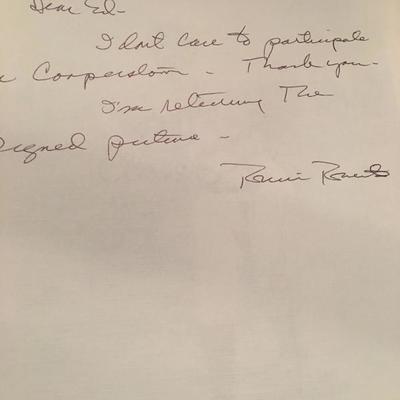 Dear Ed-
I dont care to participate
Cooperstown - Thank you -
I'm returning The
signed picture -
Robin Roberts